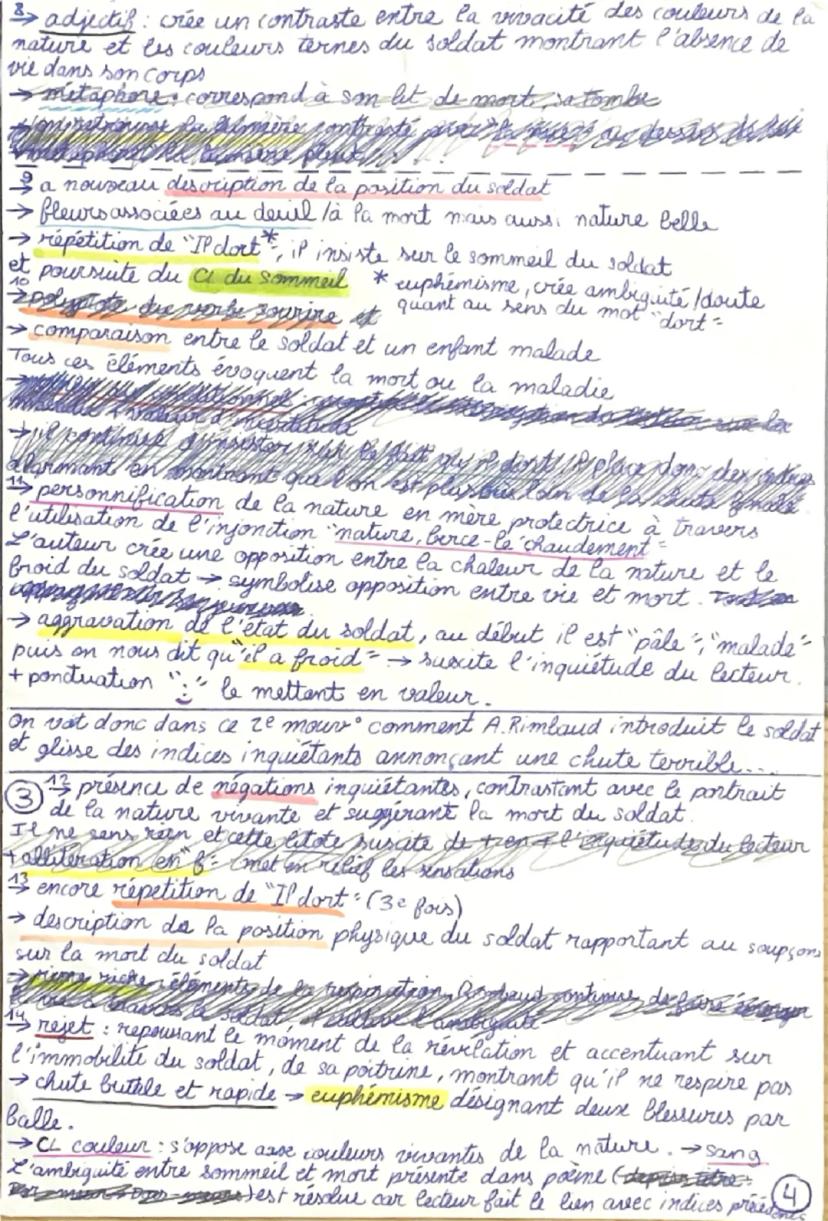 8→ adjectif : crée un contraste entre la vivacité des couleurs de la
nature et les couleurs ternes du soldat montrant l'absence de
vie dans son corps
→ métaphore : correspond à son lit de mort, sa tombe
9→ a nouveau description de la position du soldat
→ fleurs associées au deuil / à la mort mais aussi nature belle
→ répétition de "Il dort"*, il insiste sur le sommeil du soldat
et poursuite du CL du sommeil * euphémisme, crée ambiguité / doute
quant au sens du mot "dort"
10→ polyptote du verbe sourire et
→ comparaison entre le soldat et un enfant malade
Tous ces éléments évoquent la mort ou la maladie
→ il continue d'insister sur le fait qu'il dort, il place donc des indices
alarmant en montrant que l'on est plus loin de la chute finale
11→ personnification de la nature en mère protectrice à travers
l'utilisation de l'injonction "nature, berce-le chaudement"
L'auteur crée une opposition entre la chaleur de la nature et le
froid du soldat → symbolise opposition entre vie et mort.
→ aggravation de l'état du soldat, au début il est "pâle", "malade"
puis on nous dit qu'"il a froid" → suscite l'inquiétude du lecteur.
+ ponctuation ":" le mettant en valeur.
On voit donc dans ce 2e mouv° comment A.Rimbaud introduit le soldat
et glisse des indices inquiétants annonçant une chute terrible...
③ 12→ présence de négations inquiétantes, contrastant avec le portrait
de la nature vivante et suggérant la mort du soldat.
Il ne sens rien et cette litote suscite de + en + l'inquiétude du lecteur
+ allitération en "f" = met en relief les sensations
13→ encore répétition de "Il dort" (3e fois)
→ description de la position physique du soldat rapportant au soupçons
sur la mort du soldat
→ rime riche : éléments de la respiration, Rimbaud continue de faire
14→ rejet : repoussant le moment de la révélation et accentuant sur
l'immobilité du soldat, de sa poitrine, montrant qu'il ne respire pas
→ chute buthle et rapide → euphémisme désignant deux blessures par
balle.
→ CL couleur : s'oppose avec couleurs vivantes de la nature. → sang
L'ambiguité entre sommeil et mort présente dans poème
est résolue car lecteur fait le lien avec indices précédents
④